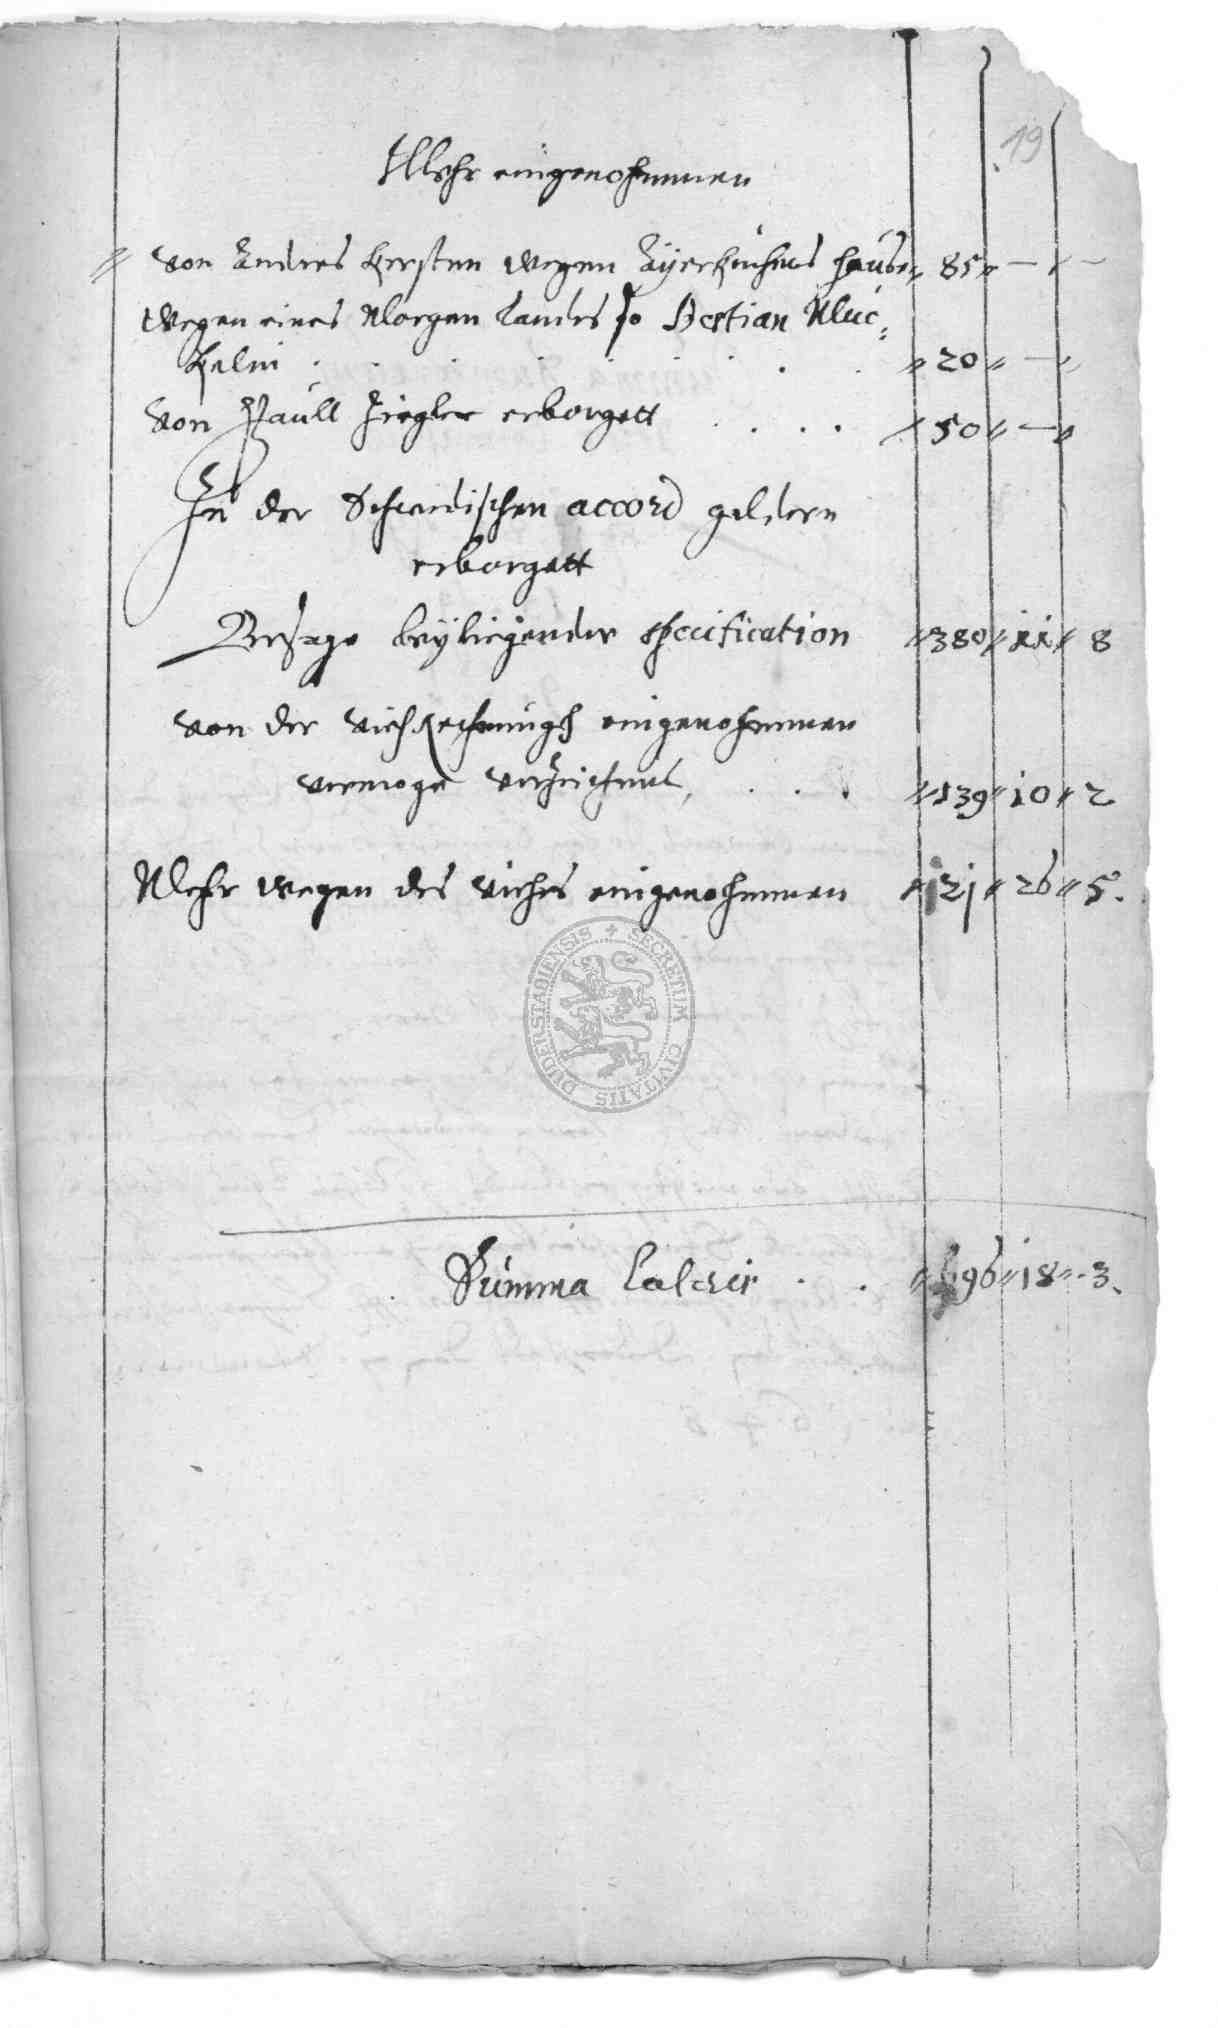 19
Mehr eingenohmmen
von Andres Kersten wegen Eyerkuchens hause 85 — —
wegen eines Morgen Landes so Bestian Müc⸗
kelin . . . . . 20 —
von Paull Ziegler erborgett . . . . 50 —
Zu der Schwedischen accord geldern
erborgett
Besage beyliegender specification 380 11 8
von der viehRechnungh eingenohmmen
vermoge verzeichnus, . . . 139 10 2
Mehr wegen des viehes eingenohmmen 21 26 5.
SECRETUM CIVITATIS DUDERSTADIENSIS
Summa Lateris . . 696 18 3.